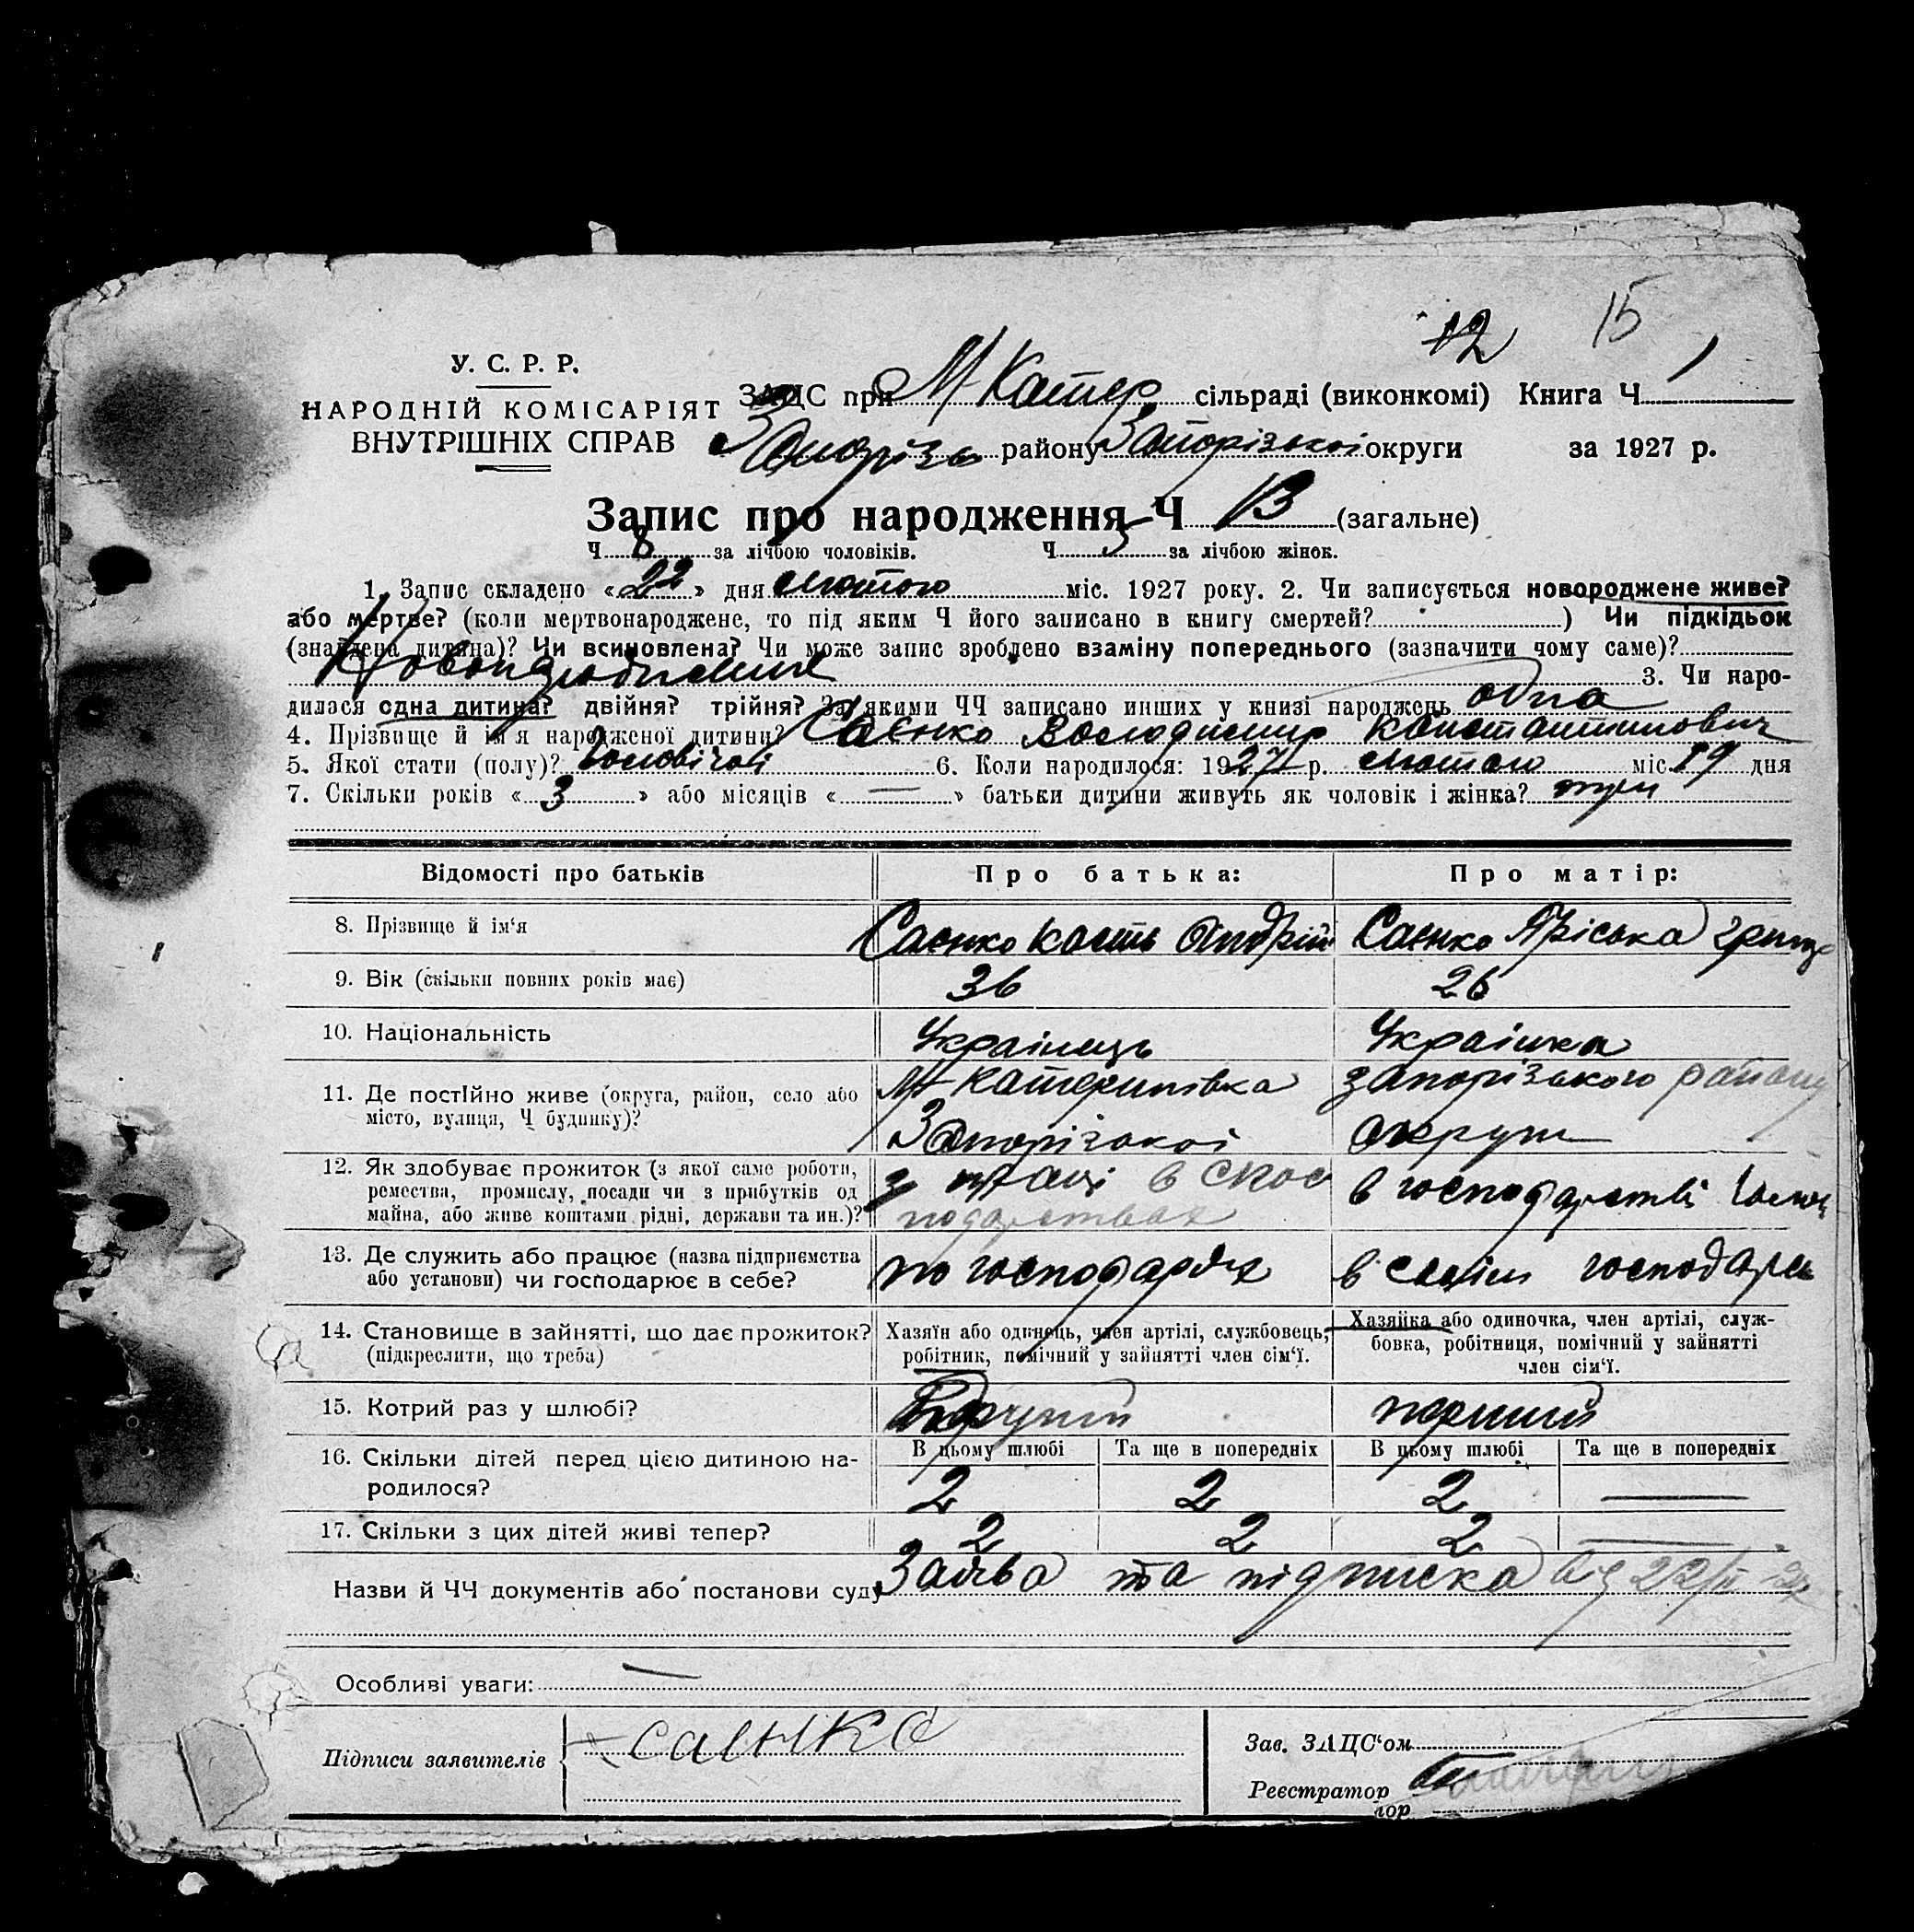 12 15
У. С. Р. Р.
НАРОДНІЙ КОМІСАРІЯТ
ВНУТРІШНІХ СПРАВ
ЗАЦС при М-Катер. сільраді (виконкомі) Книга Ч 1
району Запорізької округи за 1927 р.
Запис про народження Ч 13 (загальне)
Ч 8 за лічбою чоловіків. Ч 5 за лічбою жінок.
1. Запис складено «22» дня лютого міс. 1927 року. 2. Чи записується новороджене живе?
або мертве? (коли мертвонароджене, то під яким Ч його записано в книгу смертей? ) Чи підкідьок
(знайдена дитина)? Чи всиновлена? Чи може запис зроблено взаміну попереднього (зазначити чому саме)?
3. Чи наро-
дилася одна дитина? двійня? трійня? За якими ЧЧ записано инших у книзі народжень одна
4. Прізвище й ім'я народженої дитини? Саєнко Володимир Константинович
5. Якої стати (полу)? чоловічої 6. Коли народилося: 1927 р. лютого міс 19 дня
7. Скільки років «3» або місяців «—» батьки дитини живуть як чоловік і жінка? три
Відомості про батьків Про батька: Про матір:
8. Прізвище й ім'я Саєнко Кость Андрій Саєнко Пріська Гриц
9. Вік (скільки повних років має) 36 26
10. Національність Українець Українка
11. Де постійно живе (округа, район, село або М-Катеринівка Запорізького району
місто, вулиця, Ч будинку)? Запорізької округи
12. Як здобуває прожиток (з якої саме роботи, з праці в
ремества, промислу, посади чи з прибутків од в господарстві
майна, або живе коштами рідні, держави та ин.)? подарствах
13. Де служить або працює (назва підприємства по господарях в своїм господарс
або установи) чи господарює в себе?
14. Становище в зайнятті, що дає прожиток? Хазяїн або одинець, член артілі, службовець, Хазяйка або одиночка, член артілі, служ-
(підкреслити, що треба) робітник, помічний у зайнятті член сім'ї. бовка, робітниця, помічний у зайнятті
член сім'ї.
15. Котрий раз у шлюбі? другий перший
В цьому шлюбі Та ще в попередніх В цьому шлюбі Та ще в попередніх
16. Скільки дітей перед цією дитиною на-
родилося? 2 2 2 —
17. Скільки з цих дітей живі тепер? 2 2 2 —
Назви й ЧЧ документів або постанови суду Заява та підписка від 22/II 27
Особливі уваги: —
Підписи заявителів саєнко
Зав. ЗАЦС'ом
Реєстратор